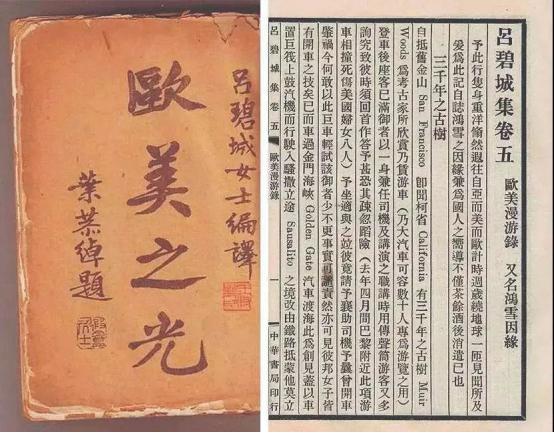 呂碧城女士編譯
歐美之光
葉恭綽題
呂碧城集卷五 歐美漫游錄 又名鴻雪因緣
予此行隻身重洋翛然遐往自亞而美而歐計時週歲繞地球一匝見聞所及
爰為此記自誌鴻雪之因緣兼為國人之嚮導不僅茶餘酒後消遣已也
三千年之古樹
自抵舊金山 San Franciso 卽聞柯省 California 有三千年之古樹 Muir
Woods 為考古家所欣賞乃賃游車（乃大汽車可容數十人專為游覽之用）
登車後座客已滿御者以一身兼任司機及講演之職講時用傳聲筒游客又多
詢究致彼時須回首作答予甚恐其疎忽蹈險（去年四月間巴黎附近此項游
車相撞死傷美國婦女八人）予坐適與之竝彼竟請予襄助司機予曩曾開車
肇禍今何敢以此巨車輕試該御者少不更事實可譴責然亦可見彼邦女子皆
有開車之技矣已而車過金門海峽 Golden Gate 汽車渡海此為創見蓋以車
置巨筏上鼓汽機而行駛入騷撒立途 Sausalito 之境改由鐵路抵蒙他莫立
呂碧城集 卷五 歐美漫游錄 一 中華書局印行